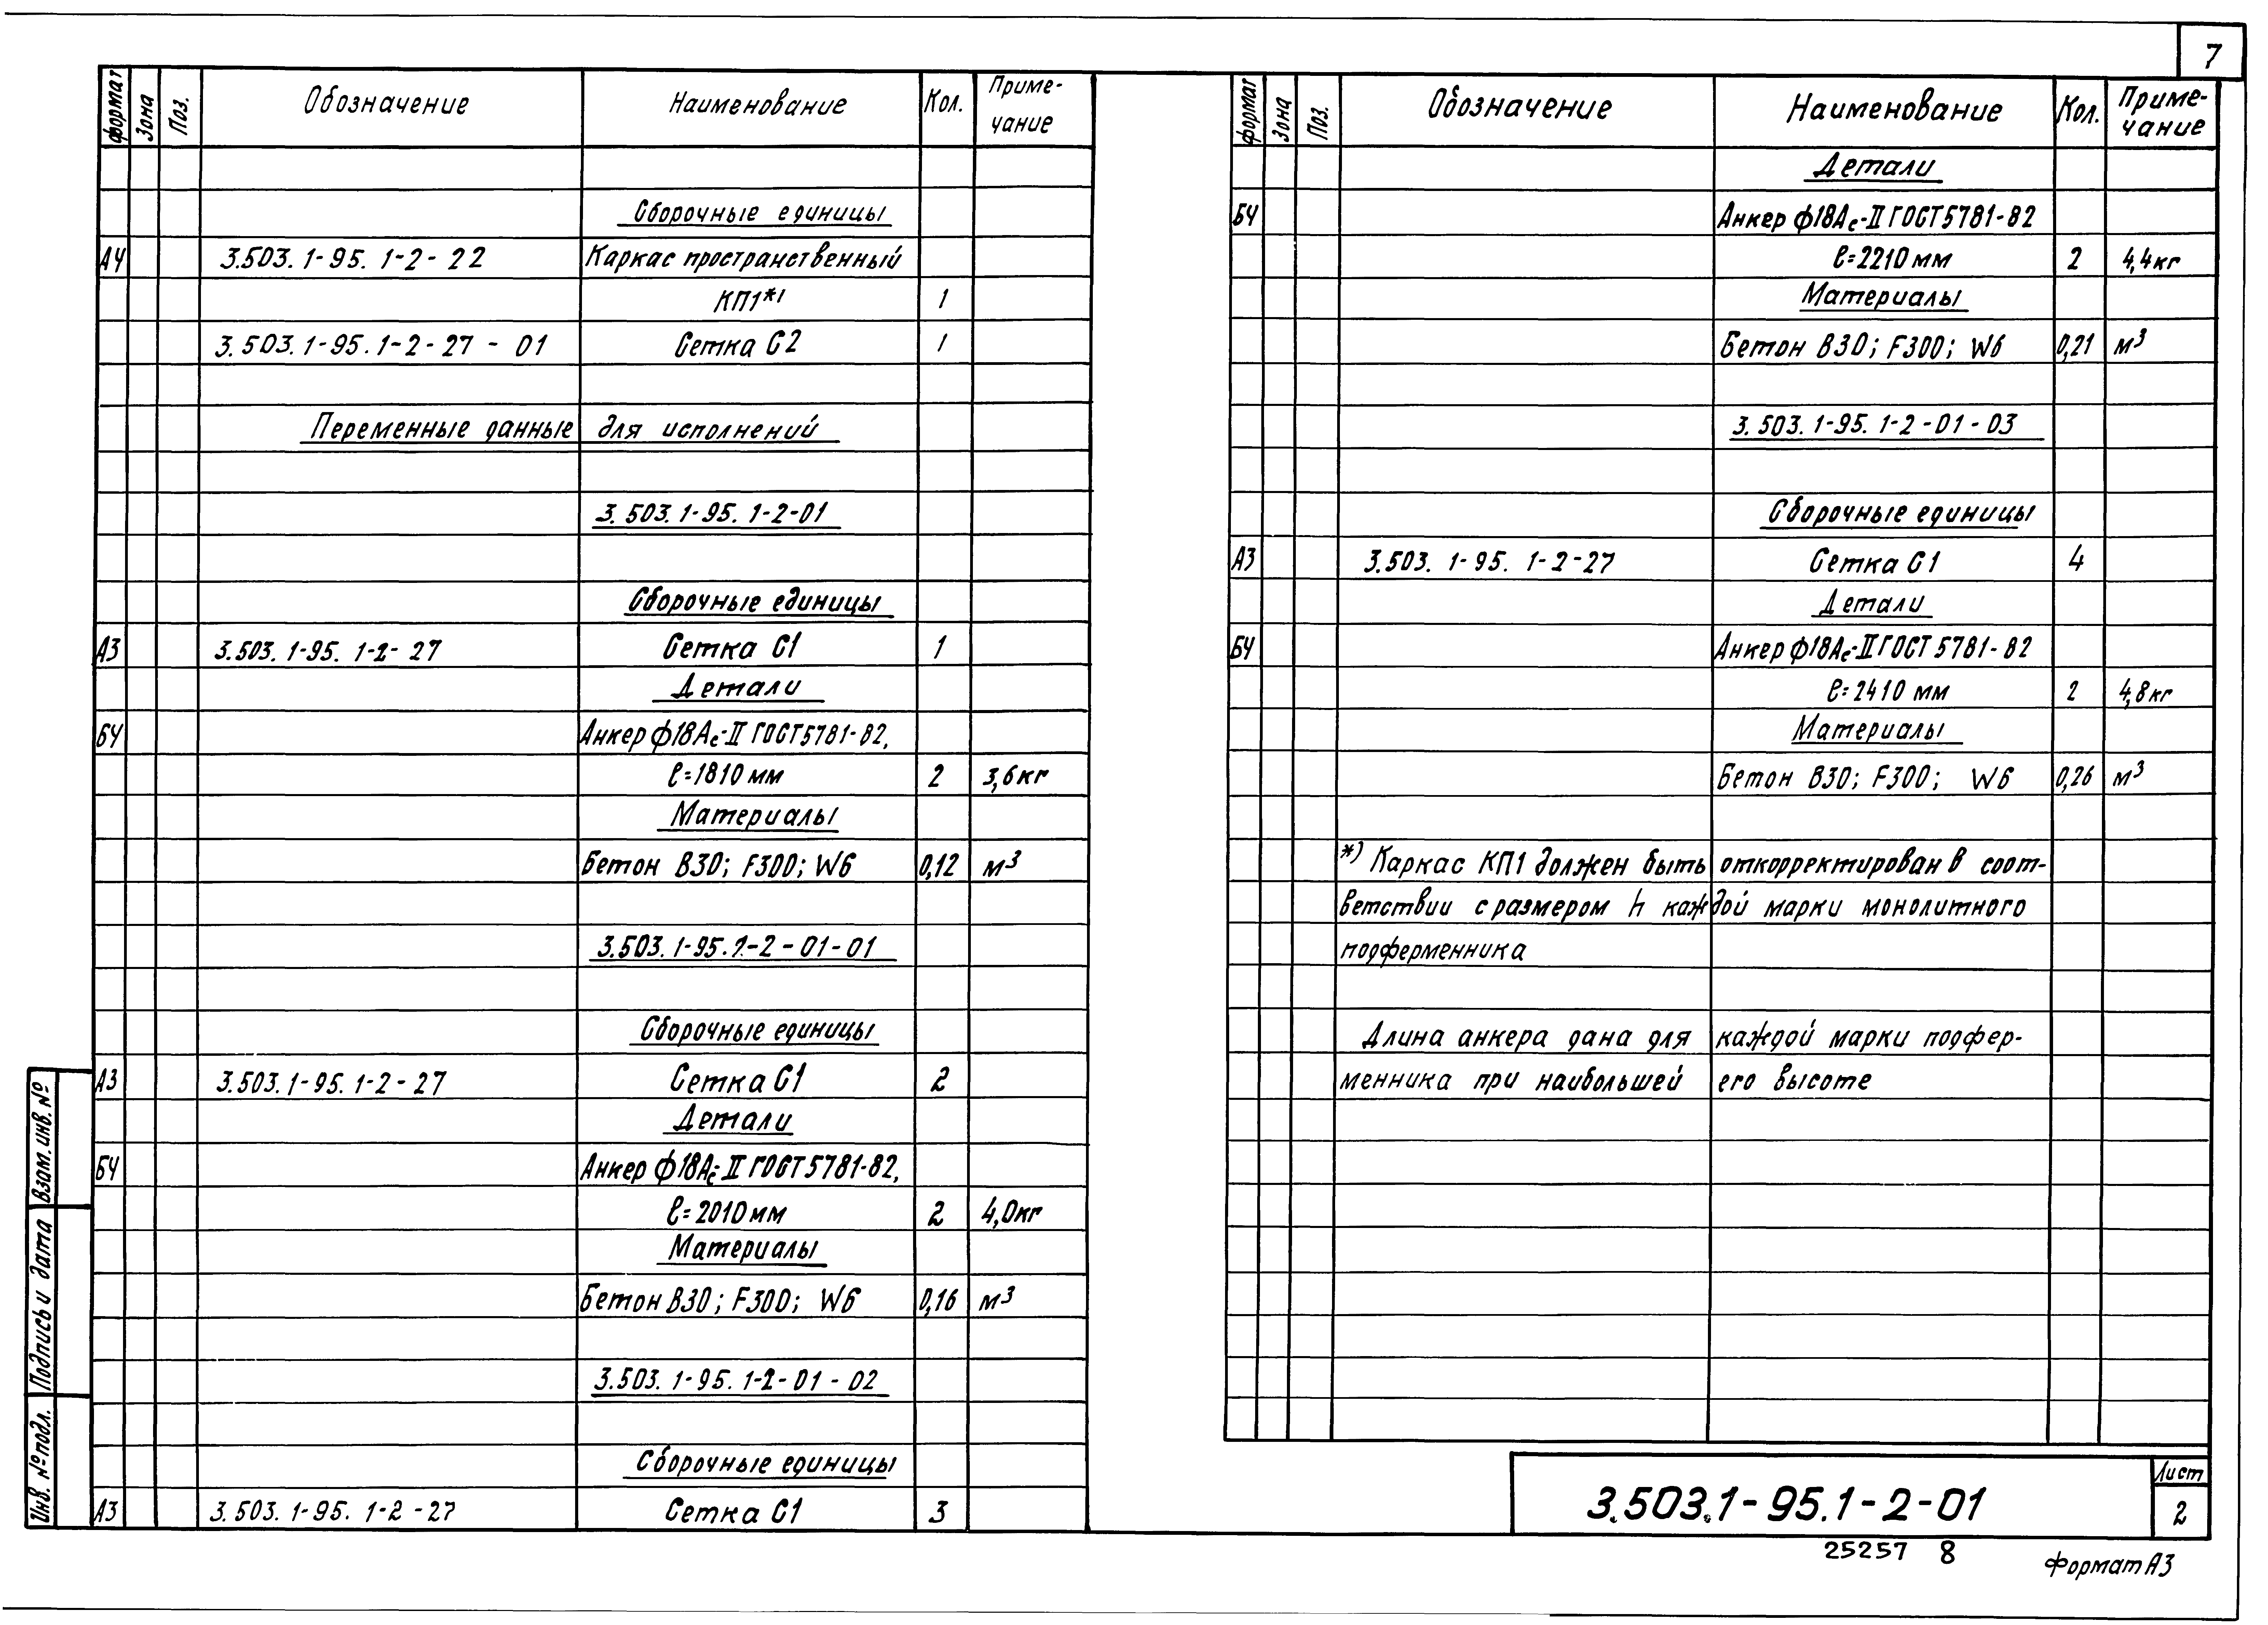 7
формат Зона Поз. Обозначение Наименование Кол. Приме-
чание
Сборочные единицы
А4 3.503.1-95.1-2-22 Каркас пространственный
КП1*) 1
3.503.1-95.1-2-27-01 Сетка С2 1
Переменные данные для исполнений
3.503.1-95.1-2-01
Сборочные единицы
А3 3.503.1-95.1-2-27 Сетка С1 1
Детали
БЧ Анкер ф18Ас-II ГОСТ 5781-82,
ℓ=1810 мм 2 3,6кг
Материалы
Бетон В30; F300; W6 0,12 м³
3.503.1-95.1-2-01-01
Сборочные единицы
А3 3.503.1-95.1-2-27 Сетка С1 2
Детали
БЧ Анкер ф18Ас-II ГОСТ 5781-82,
ℓ=2010 мм 2 4,0кг
Материалы
Бетон В30; F300; W6 0,16 м³
3.503.1-95.1-2-01-02
Сборочные единицы
А3 3.503.1-95.1-2-27 Сетка С1 3
формат Зона Поз. Обозначение Наименование Кол. Приме-
чание
Детали
БЧ Анкер ф18Ас-II ГОСТ 5781-82
ℓ=2210 мм 2 4,4кг
Материалы
Бетон В30; F300; W6 0,21 м³
3.503.1-95.1-2-01-03
Сборочные единицы
А3 3.503.1-95.1-2-27 Сетка С1 4
Детали
БЧ Анкер ф18Ас-II ГОСТ 5781-82
ℓ=2410 мм 2 4,8кг
Материалы
Бетон В30; F300; W6 0,26 м³
*) Каркас КП1 должен быть откорректирован в соот-
ветствии с размером h каждой марки монолитного
подферменника
Длина анкера дана для каждой марки подфер-
менника при наибольшей его высоте
Взам. инв. №
Подпись и дата
Инв. № подл.
3.503.1-95.1-2-01
Лист
2
25257 8
Формат А3